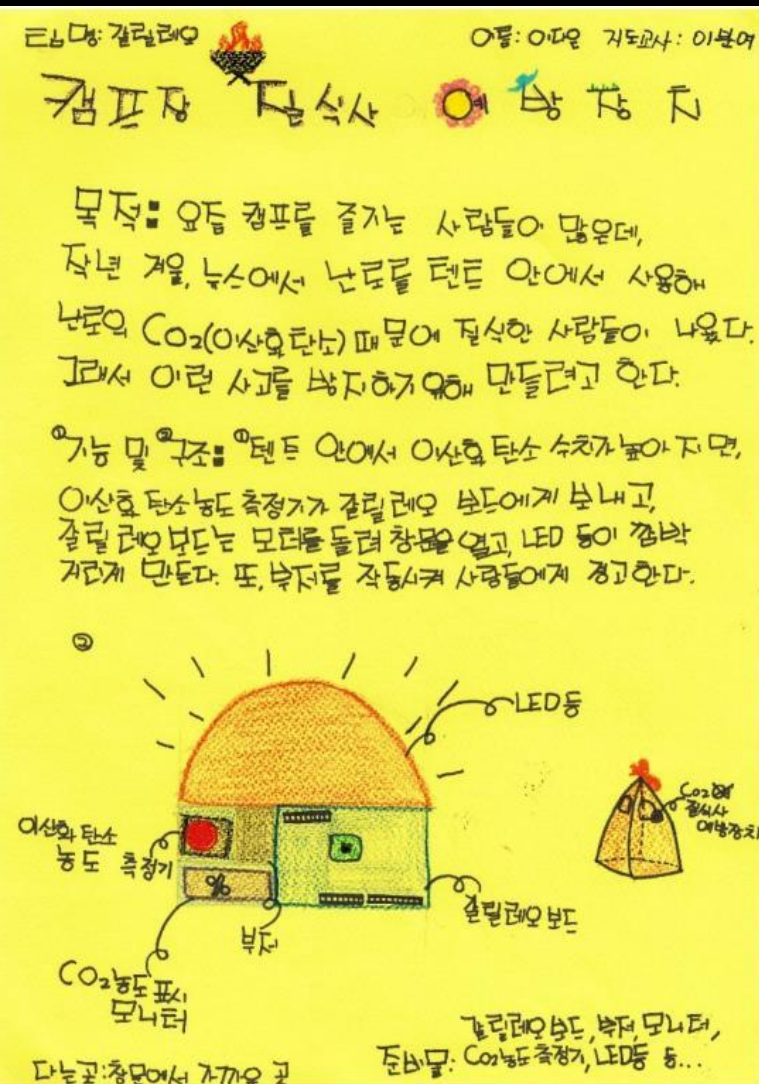 팀명: 갈릴레오
이름: 이다은 지도교사: 이분여
캠프장 질식사 예방장치
목적: 요듬 캠프를 즐기는 사람들이 많은데,
작년 겨울, 뉴스에서 난로를 텐트 안에서 사용해
난로의 CO₂(이산화탄소) 때문에 질식한 사람들이 나왔다.
그래서 이런 사고를 방지하기 위해 만들려고 한다.
①기능 및 ②구조: ①텐트 안에서 이산화 탄소 수치가 높아 지면,
이산화 탄소 농도 측정기가 갈릴레오 보드에게 보내고,
갈릴레오 보드는 모터를 돌려 창문을 열고, LED 등이 깜박
거리게 만든다. 또, 부저를 작동시켜 사람들에게 경고한다.
②
LED등
이산화 탄소
농도 측정기
%
부저
갈릴레오 보드
CO₂농도 표시
모니터
CO₂
질식사
예방장치
다는곳: 창문에서 가까운 곳
갈릴레오 보드, 부저, 모니터,
준비물: CO₂농도 측정기, LED등 등...